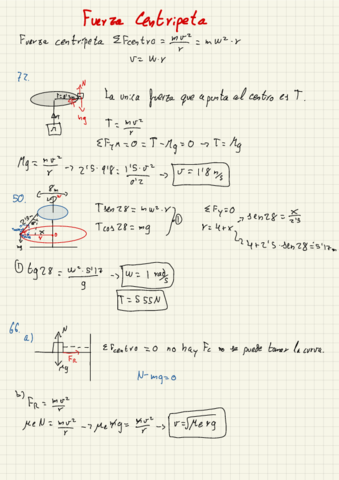 Fuerza Centripeta
Fuerza centripeta ΣFcentro = mv²/r = mw²·r
v = w·r
72.
La unica fuerza que apunta al centro es T.
N
mg
T = mv²/r
ΣFy = 0 = T - Mg = 0 → T = Mg
Mg = mv²/r → 2'5·9'8 = 1'5·v²/0'2 → v = 1'8 m/s
8m
50.
T sen 28 = mw²·r
T cos 28 = mg
①
ΣFy = 0
r = 4 + x
sen 28 = x/2'5
4 + 2'5·sen 28 = 5'17m
① tg 28 = w²·5'17/g → w = 1 rad/s
T = 555N
66.
a)
N
FR
Mg
ΣFcentro = 0 no hay Fc no se puede tomar la curva.
N - mg = 0
b)
FR = mv²/r
μeN = mv²/r → μe mg = mv²/r → v = √μe rg